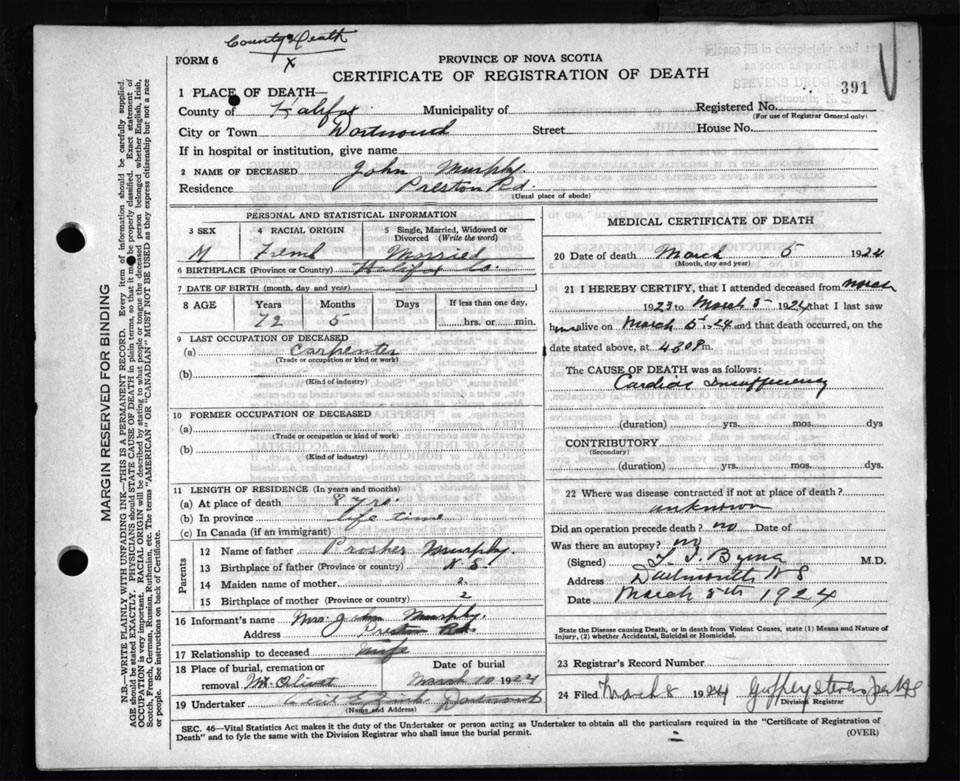 County Death
X
FORM 6
PROVINCE OF NOVA SCOTIA
CERTIFICATE OF REGISTRATION OF DEATH
391
1 PLACE OF DEATH—
County of Halifax Municipality of Registered No.
(For use of Registrar General only)
City or Town Dartmouth Street House No.
If in hospital or institution, give name
2 NAME OF DECEASED John Murphy.
Residence Preston Rd.
(Usual place of abode)
PERSONAL AND STATISTICAL INFORMATION
3 SEX 4 RACIAL ORIGIN 5 Single, Married, Widowed or Divorced (Write the word)
M French Married
6 BIRTHPLACE (Province or Country) Halifax Co.
7 DATE OF BIRTH (month, day and year)
8 AGE Years Months Days If less than one day,
72 5 hrs. or min.
9 LAST OCCUPATION OF DECEASED
(a) Carpenter
(Trade or occupation or kind or work)
(b)
(Kind of industry)
10 FORMER OCCUPATION OF DECEASED
(a)
(Trade or occupation or kind of work)
(b)
(Kind of industry)
11 LENGTH OF RESIDENCE (In years and months)
(a) At place of death 8 yrs.
(b) In province life time
(c) In Canada (if an immigrant)
Parents
12 Name of father Prosher Murphy.
13 Birthplace of father (Province or country) N.S.
14 Maiden name of mother ?
15 Birthplace of mother (Province or country) ?
16 Informant's name Mrs. John Murphy.
Address Preston Rd.
17 Relationship to deceased Wife
18 Place of burial, cremation or removal Mt. Olivet Date of burial March 10 1924
19 Undertaker Zink Dartmouth
(Name and Address)
MEDICAL CERTIFICATE OF DEATH
20 Date of death March 5 1924
(Month, day and year)
21 I HEREBY CERTIFY, that I attended deceased from March
1923 to March 5 1924 that I last saw
him alive on March 5th 1924 and that death occurred, on the
date stated above, at 4.30 P.m.
The CAUSE OF DEATH was as follows:
Cardiac Insufficiency
(duration) yrs. mos. dys
CONTRIBUTORY
(Secondary)
(duration) yrs. mos. dys.
22 Where was disease contracted if not at place of death?
unknown
Did an operation precede death? no Date of
Was there an autopsy? no
(Signed) Byrne M.D.
Address Dartmouth N S
Date March 5th 1924
State the Disease causing Death, or in death from Violent Causes, state (1) Means and Nature of Injury, (2) whether Accidental, Suicidal or Homicidal.
23 Registrar's Record Number
24 Filed March 8 1924 Godfrey Stevens
Division Registrar
SEC. 46—Vital Statistics Act makes it the duty of the Undertaker or person acting as Undertaker to obtain all the particulars required in the "Certificate of Registration of
Death" and to fyle the same with the Division Registrar who shall issue the burial permit.
(OVER)
MARGIN RESERVED FOR BINDING
N.B.—WRITE PLAINLY WITH UNFADING INK—THIS IS A PERMANENT RECORD. Every item of information should be carefully supplied.
AGE should be stated EXACTLY. PHYSICIANS should STATE CAUSE OF DEATH in plain terms, so that it may be properly classified. Exact statement of
OCCUPATION is very important. RACIAL ORIGIN will be described by stating to what people or tongue the deceased person belonged whether English, Irish,
Scotch, French, German, Russian, Ruthenian, etc. The terms "AMERICAN" OR "CANADIAN" MUST NOT BE USED as they express citizenship but not a race
or people. See instructions on back of Certificate.